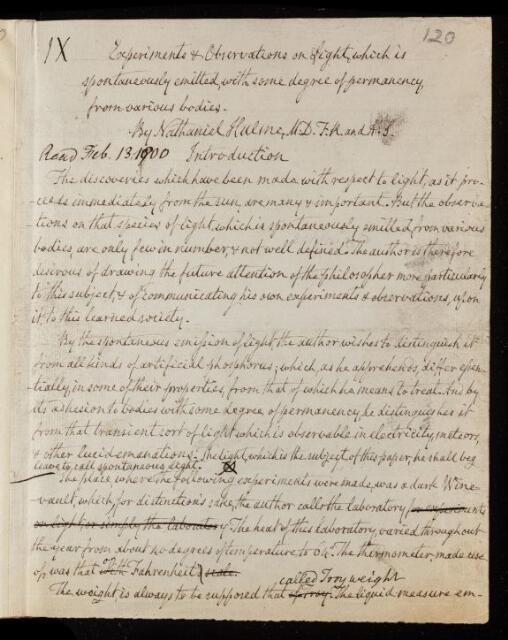 IX
120
Experiments & Observations on Light, which is
spontaneously emitted, with some degree of permanency,
from various bodies.
By Nathaniel Hulme, M.D. F.R. and A.S.
Read Feb. 13. 1800 Introduction
The discoveries which have been made with respect to light, as it pro-
ceeds immediately from the sun, are many & important. But the observa-
tions on that species of light, which is spontaneously emitted from various
bodies, are only few in number, & not well defined. The author is therefore
desirous of drawing the future attention of the philosopher more particularly
to this subject, & of communicating his own experiments & observations, upon
it, to this learned society.
By the spontaneous emission of light, the author wishes to distinguish it
from all kinds of artificial phosphorus; which, as he apprehends, differ essen-
tially, in some of their properties, from that of which he means to treat. And by
its adhesion to bodies with some degree of permanency, he distinguishes it
from that transient sort of light which is observable in electricity, meteors,
& other lucid emanations. The light, which is the subject of this paper, he shall beg
leave to call spontaneous light.
The place where the following experiments were made, was a dark Wine-
vault, which, for distinction's sake, the author calls the laboratory for experiments
on light or simply the laboratory. The heat of this laboratory varied throughout
the year from about 40 degrees of temperature to 64. The thermometer, made use
of, was that Fahrenheit
called Troy weight
The weight is always to be supposed that The liquid measure em-